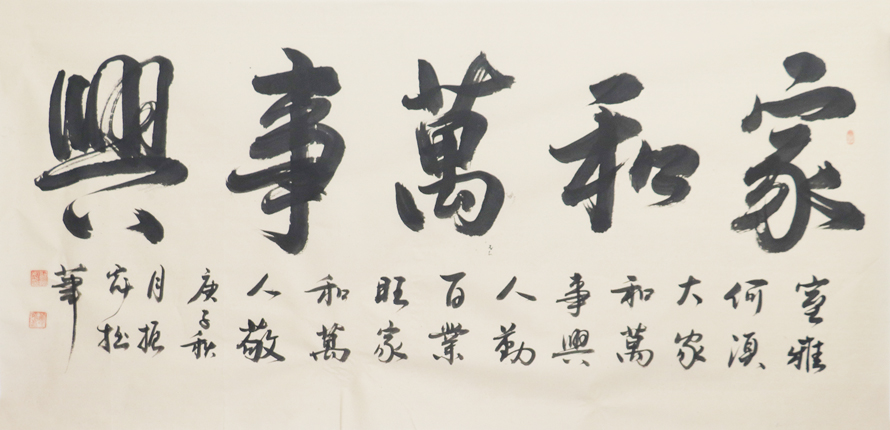 家和萬事興
室雅
何須
大家
和萬
事興
人勤
百業
旺家
和萬
人敬
庚子秋
月振
華